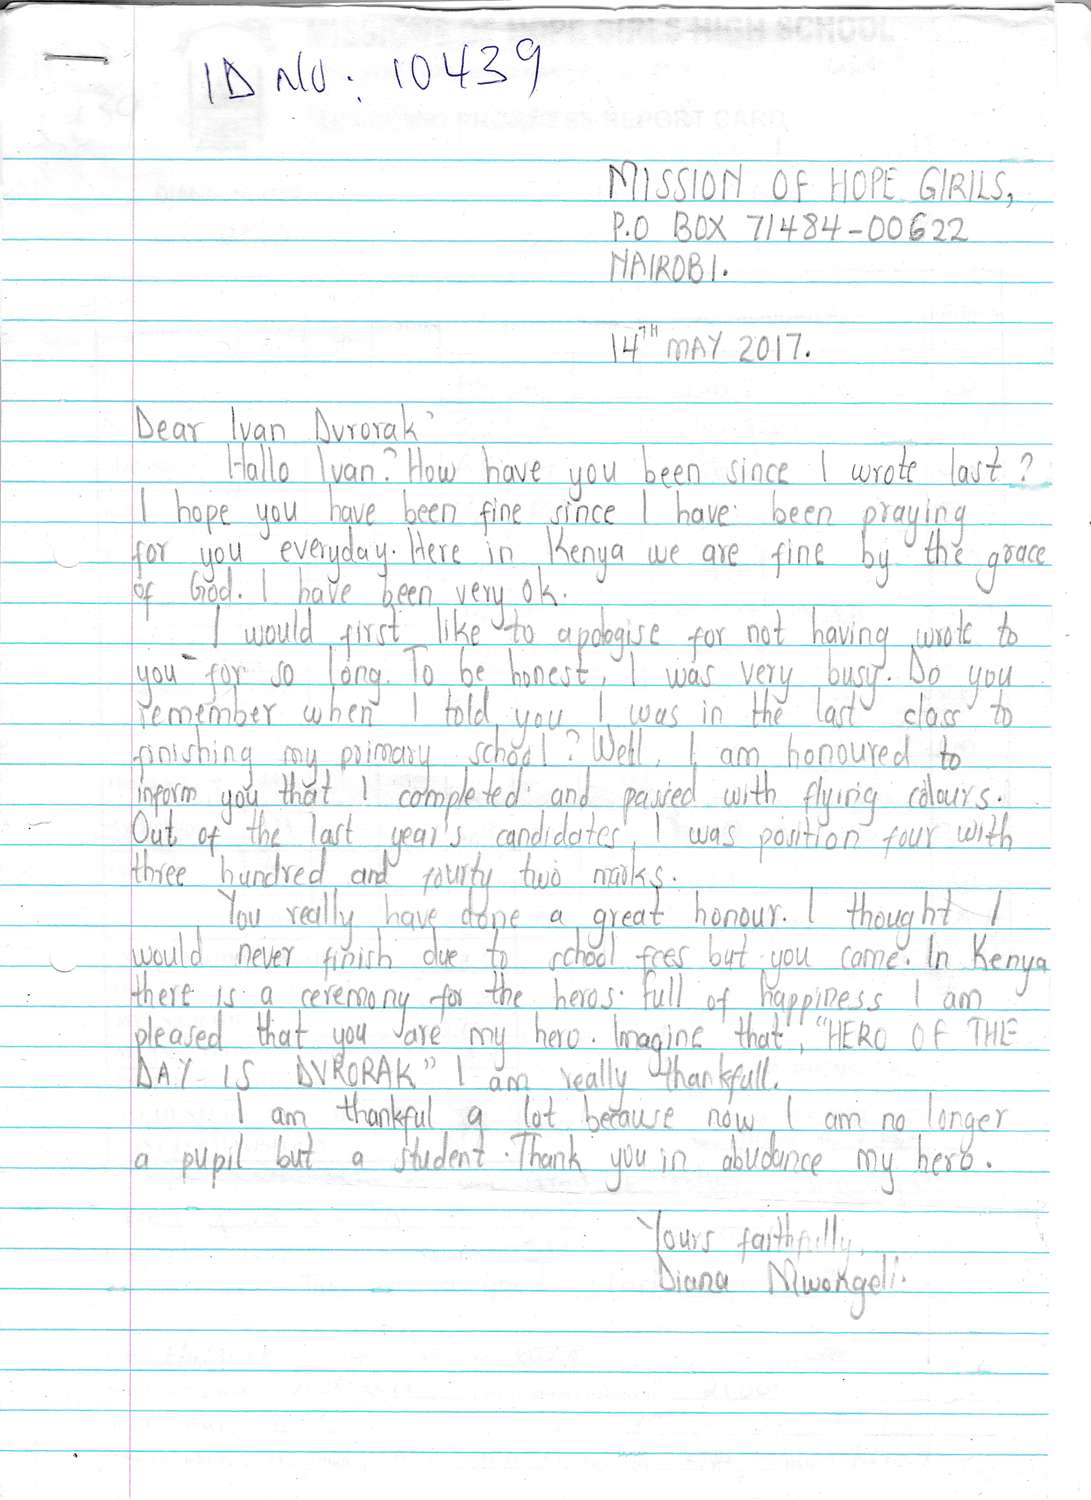 ID NO: 10439
MISSION OF HOPE GIRLS HIGH SCHOOL
REPORT CARD
MISSION OF HOPE GIRILS,
P.O BOX 71484-00622
NAIROBI.
14TH MAY 2017.
Dear Ivan Dvrorak'
Hallo Ivan? How have you been since I wrote last?
I hope you have been fine since I have been praying
for you everyday. Here in Kenya we are fine by the grace
of God. I have been very ok.
I would first like to apologise for not having wrote to
you for so long. To be honest, I was very busy. Do you
remember when I told you I was in the last class to
finishing my primary school? Well, I am honoured to
inform you that I completed and passed with flying colours.
Out of the last year's candidates, I was position four with
three hundred and fourty two marks.
You really have done a great honour. I thought I
would never finish due to school fees but you came. In Kenya
there is a ceremony for the heros. Full of happiness I am
pleased that you are my hero. Imagine that, "HERO OF THE
DAY IS DVRORAK" I am really thankfull.
I am thankful a lot because now I am no longer
a pupil but a student. Thank you in abudance my hero.
Yours faithfully,
Diana Mwongeli.